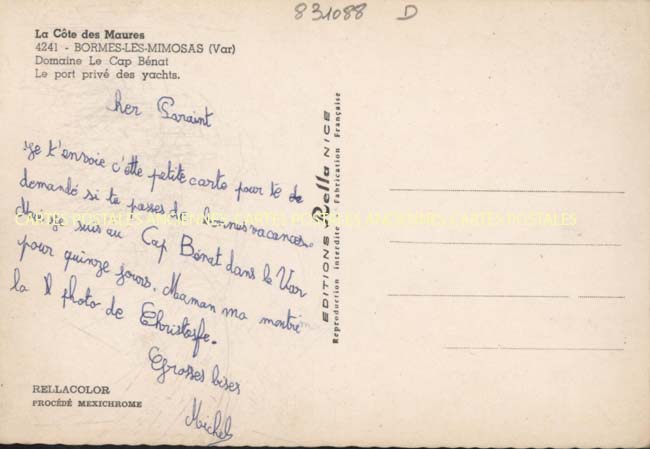 831088 D
La Côte des Maures
4241 - BORMES-LES-MIMOSAS (Var)
Domaine Le Cap Bénat
Le port privé des yachts.
her Paraint
Je t'envoie c'ette petite carte pour te de
demandé si tu passes de bonnes vacances.
suis au Cap Bénat dans le Var
pour quinze jours. Maman ma montré
la photo de Christofe.
Grosses bises
Michel
CARTES POSTALES ANCIENNES CARTES POSTALES ANCIENNES CARTES POSTALES
EDITIONS Rella NICE
Reproduction Interdite - Fabrication Française
RELLACOLOR
PROCÉDÉ MEXICHROME